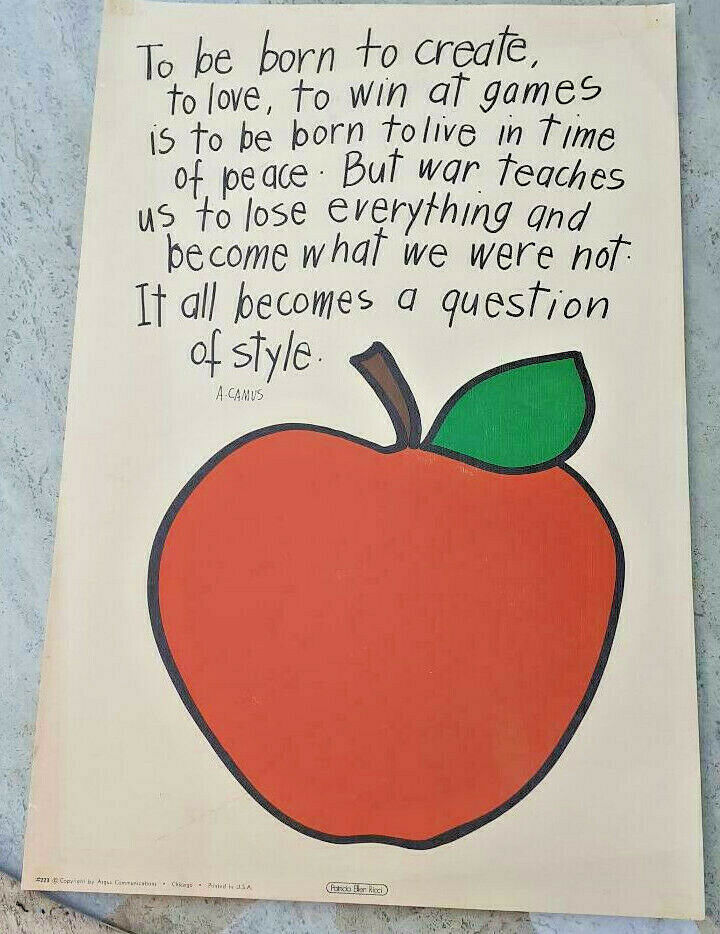 To be born to create,
to love, to win at games
is to be born to live in time
of peace. But war teaches
us to lose everything and
become what we were not.
It all becomes a question
of style.
A. CAMUS
#223 © Copyright by Argus Communications • Chicago • Printed in U.S.A.
Patricia Ellen Ricci